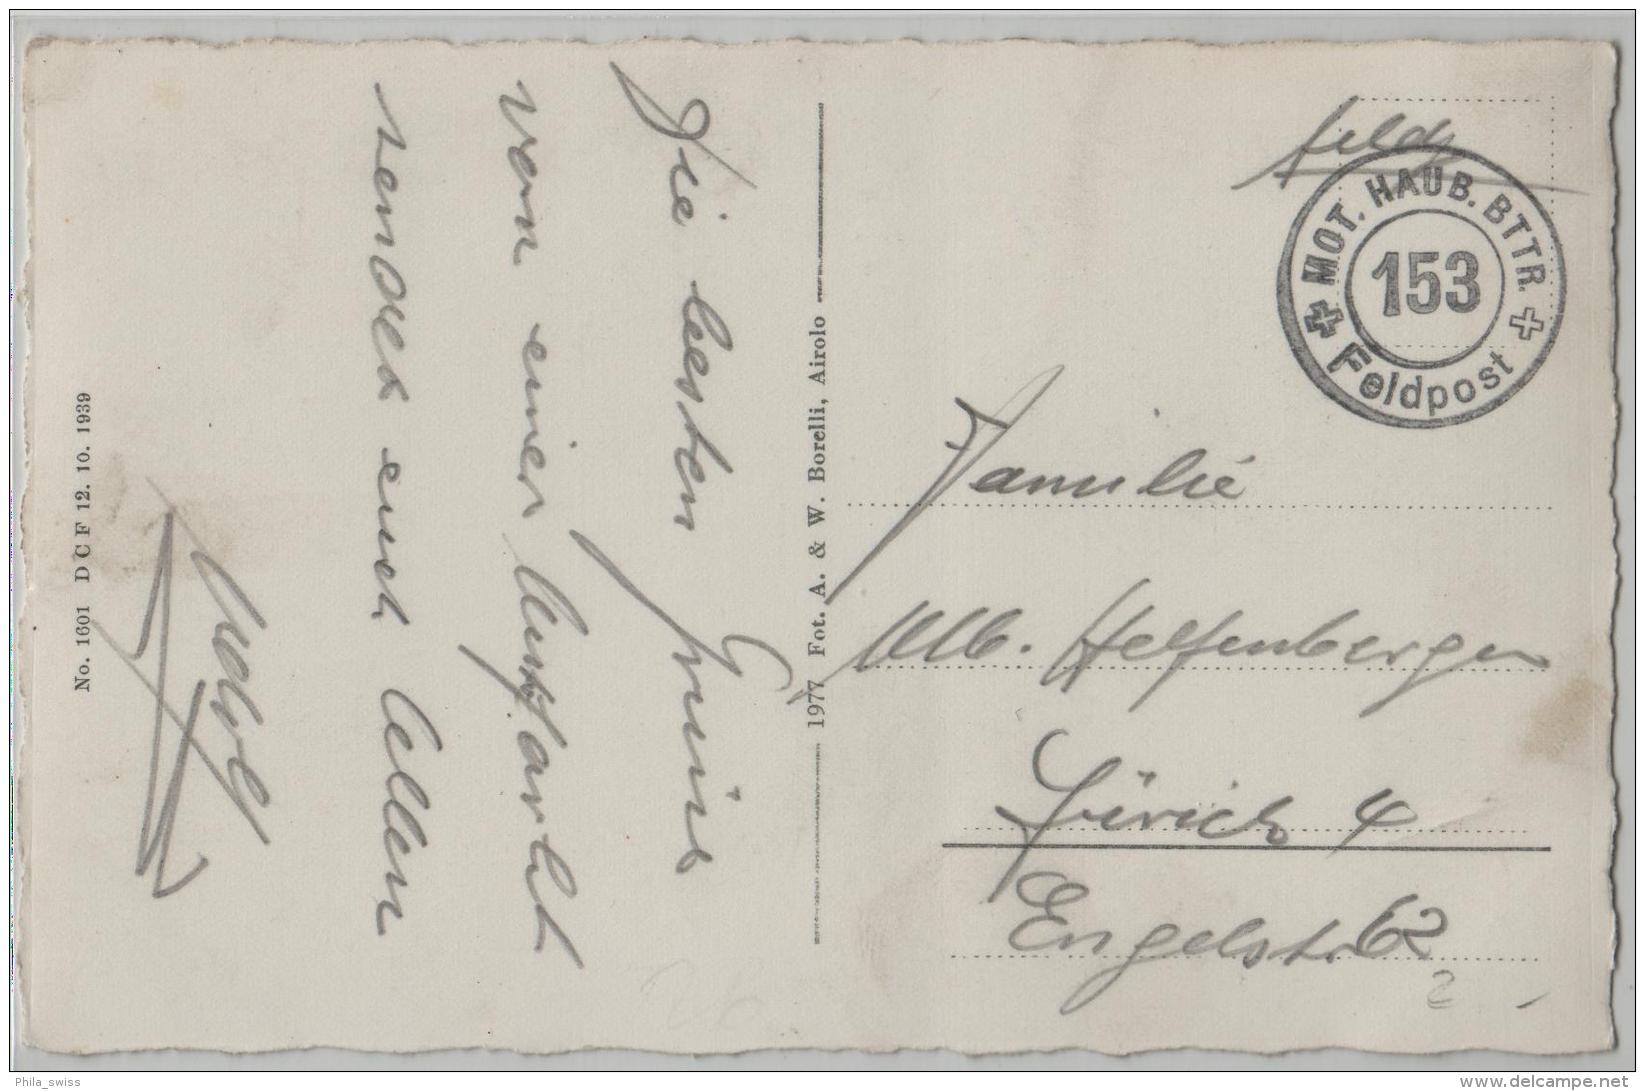 Die besten Grüsse
von einer Luftfarth
sendet euch Allen
Adolf
No. 1601 D C F 12. 10. 1939
1977 Fot. A. & W. Borelli, Airolo
Feldp
MOT. HAUB. BTTR.
153
Feldpost
Familie
Alb. Helfenberger
Zürich 4
Engelstr. 62
Phila_swiss
delcampe.net